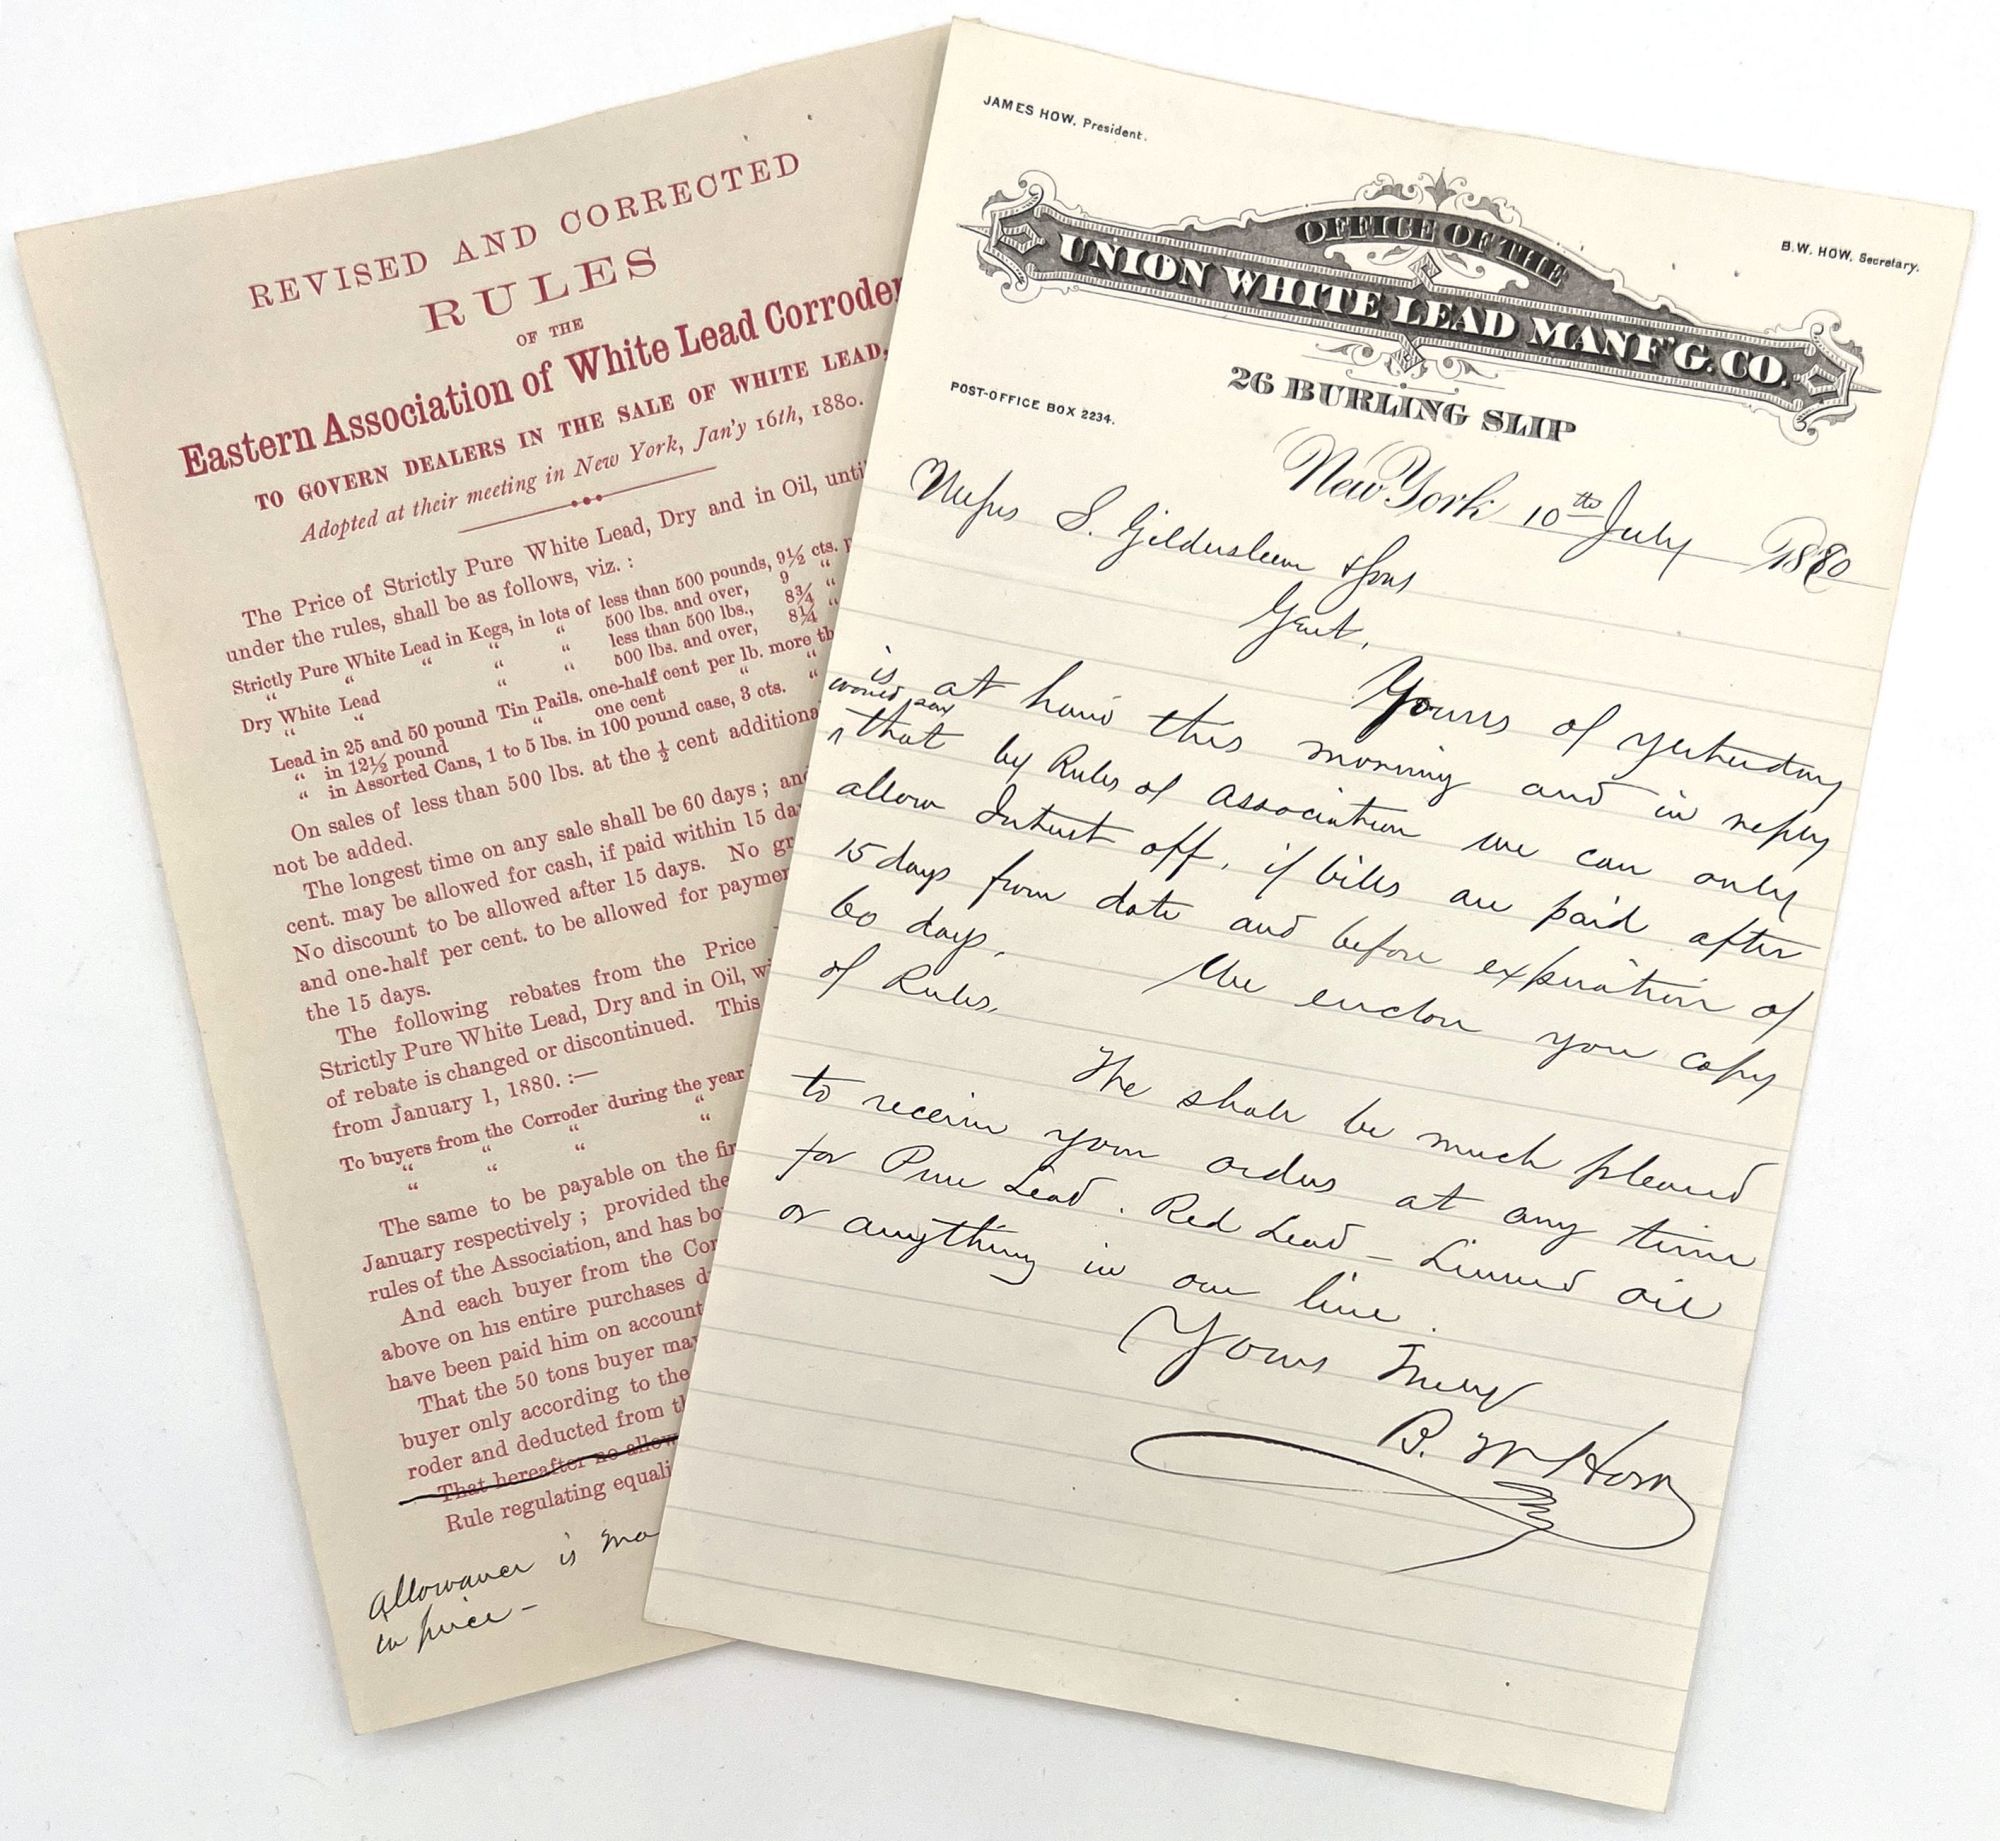 REVISED AND CORRECTED
RULES
OF THE
Eastern Association of White Lead Corroder
TO GOVERN DEALERS IN THE SALE OF WHITE LEAD,
Adopted at their meeting in New York, Jan'y 16th, 1880.
The Price of Strictly Pure White Lead, Dry and in Oil, until
under the rules, shall be as follows, viz. :
Strictly Pure White Lead in Kegs, in lots of less than 500 pounds, 9½ cts. p
" " " " " 500 lbs. and over, 9 "
Dry White Lead " " less than 500 lbs., 8¾ "
" " " " 500 lbs. and over, 8¼ "
Lead in 25 and 50 pound Tin Pails. one-half cent per lb. more th
" in 12½ pound " one cent " "
" in Assorted Cans, 1 to 5 lbs. in 100 pound case, 3 cts. "
On sales of less than 500 lbs. at the ½ cent additiona
not be added.
The longest time on any sale shall be 60 days ; and
cent. may be allowed for cash, if paid within 15 da
No discount to be allowed after 15 days. No gr
and one-half per cent. to be allowed for paymen
the 15 days.
The following rebates from the Price
Strictly Pure White Lead, Dry and in Oil, wi
of rebate is changed or discontinued. This
from January 1, 1880. :—
To buyers from the Corroder during the year
" " " "
" " " "
The same to be payable on the fir
January respectively ; provided the
rules of the Association, and has bo
And each buyer from the Cor
above on his entire purchases d
have been paid him on account
That the 50 tons buyer may
buyer only according to the
roder and deducted from th
That hereafter no allow
Rule regulating equali
Allowance is ma
in price —
JAMES HOW, President.
B.W. HOW, Secretary.
OFFICE OF THE
UNION WHITE LEAD MANF'G. CO.
26 BURLING SLIP
POST-OFFICE BOX 2234.
New York 10th July 1880
Messrs S. Gildersleeve & Sons
Gent,
Yours of yesterday
is at hand this morning and in reply
would say
that by Rules of Association we can only
allow Interest off, if bills are paid after
15 days from date and before expiration of
60 days. We enclose you copy
of Rules.
We shall be much pleased
to receive your orders at any time
for Pure Lead. Red Lead — Linseed oil
or anything in our line.
Yours Truly
B. W. How